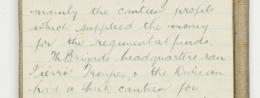 mainly the canteen profits
which supplied the money
for the regimental funds.
The Brigade headquarters ran
"Pierrot" Troupes, & the Division
had a big canteen for